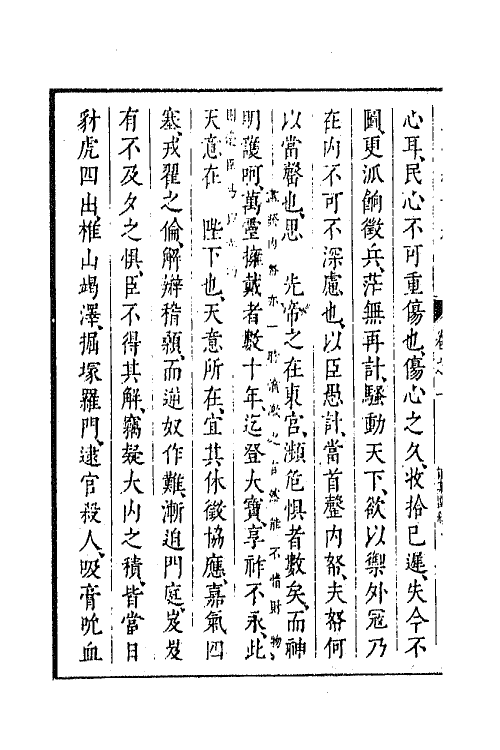 心耳民心不可重傷也傷心之久收拾已遲失今不
圖更派餉徵兵茫無再計騷動天下欲以禦外寇乃
在内不可不深慮也以臣愚計當首罄内帑夫帑何
以當罄也思　先帝之在東宫瀕危惧者數矣而神
明護呵萬靈擁戴者數十年迄登大寶享祚不永此
天意在　陛下也天意所在宜其休徵協應嘉氣四
塞戎翟之倫解辮稽顙而逆奴作難漸迫門庭岌岌
有不及夕之惧臣不得其解竊疑大内之積皆當日
豺虎四出椎山竭澤掘塚羅門逮官殺人吸膏吮血